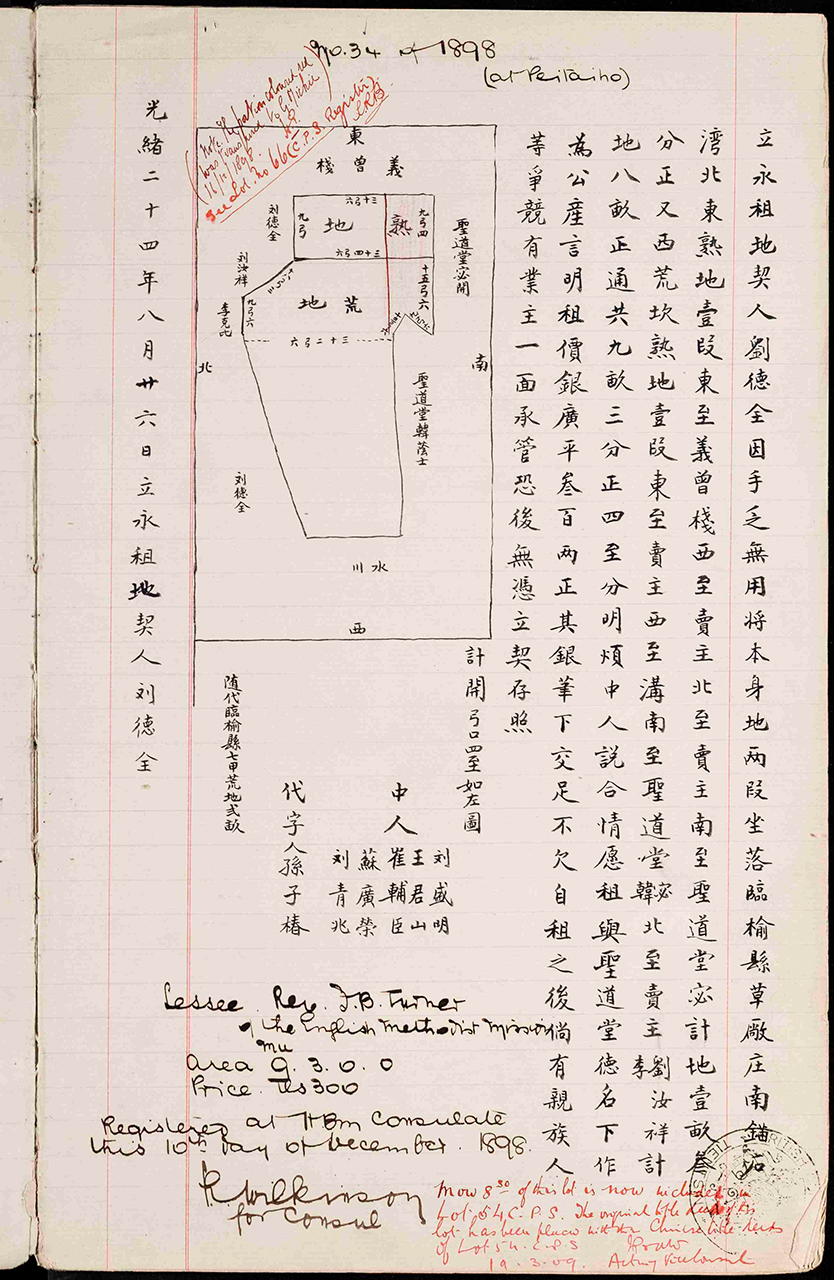 No. 34 of 1898
(at Peitaiho)
Note the portion coloured red
was transferred to G. Michie
16/12/1898.
See Lot. No 66 C.P.S. Register
立永租地契人劉德全因手乏無用将本身地两段坐落臨榆縣草厰庄南錨石
湾北東熟地壹段東至義曾棧西至賣主北至賣主南至聖道堂宓計地壹畝叁
分正又西荒坎熟地壹段東至賣主西至溝南至聖道堂宓韓北至賣主劉汝祥李計
地八畝正通共九畝三分正四至分明煩中人説合情愿租與聖道堂德名下作
為公産言明租價銀廣平叁百两正其銀筆下交足不欠自租之後倘有親族人
等爭競有業主一面承管恐後無憑立契存照
計開弓口四至如左圖
東
義曾棧
南
聖道堂宓開
聖道堂韓蔭士
西
水川
北
刘德全
刘汝祥
李克比
刘德全
三十弓六
九弓
熟地
九弓四
三十四弓六
十五弓六
荒地
九弓六
三十二弓六
中人
刘盛明
王君山
崔輔臣
蘇廣榮
刘青兆
代字人孫子椿
随代臨榆縣七甲荒地弍畝
光緒二十四年八月廿六日立永租地契人刘德全
Lessee. Rev. F.B. Turner
of the English Methodist Mission
mu
Area 9. 3. 0. 0
Price. Tls 300
Registered at HBM Consulate
this 10th day of December. 1898.
Wilkinson
for Consul
Mow 8.30 of this lot is now included in
Lot 54 C.P.S. The original title deed of this
lot has been placed with the Chinese title deeds
of Lot 54. C.P.S
19.3.09. Acting Vice Consul
BRITISH